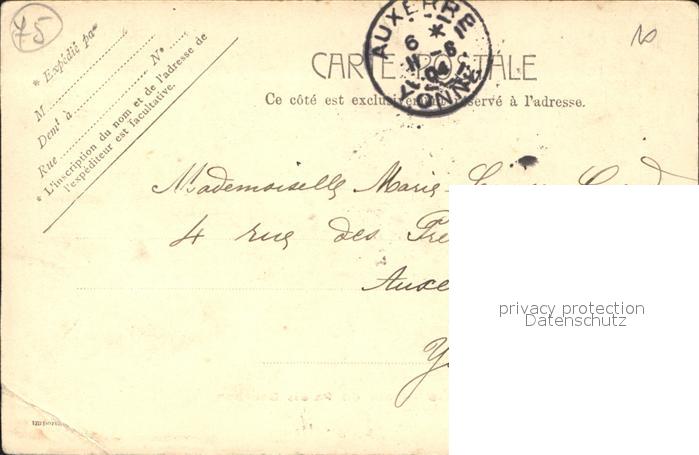 75
10
* Expédié par
M
N°
Demt à
Rue
* L'inscription du nom et de l'adresse de
l'expéditeur est facultative.
AUXERRE
6 *
11 - 6
04
YONNE
CARTE POSTALE
Ce côté est exclusivement réservé à l'adresse.
Mademoiselle Marie
4 rue des Pre
Auxe
Y
privacy protection
Datenschutz